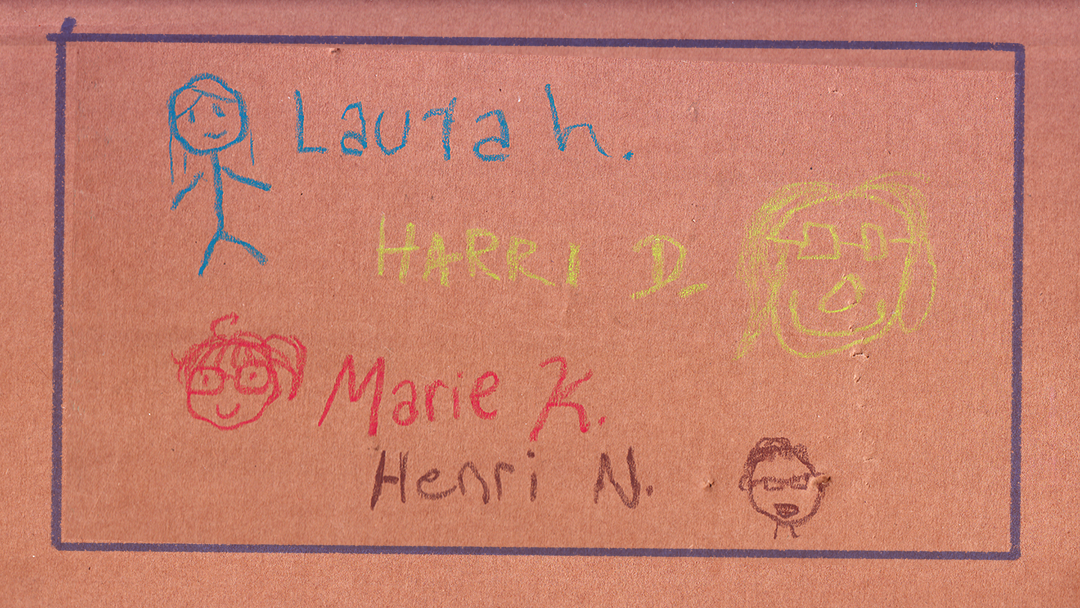 Laura h.
HARRI D.
Marie K.
Henri N.